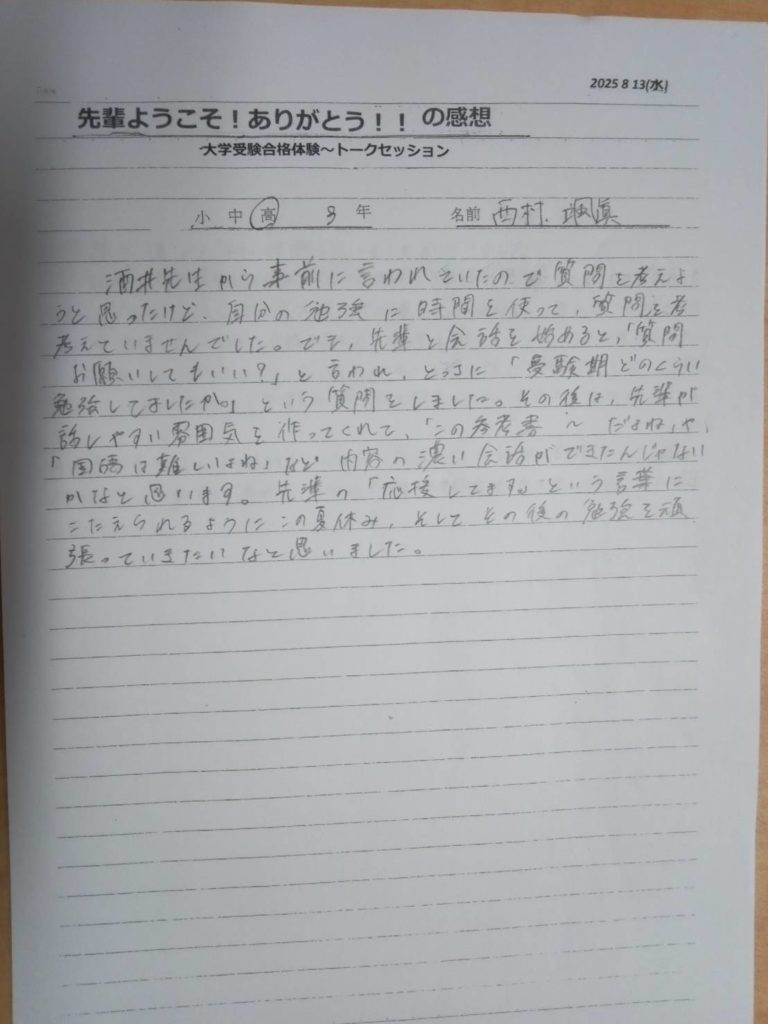 2025 8 13(水)
先輩ようこそ!ありがとう!! の感想
大学受験合格体験~トークセッション
小 中 高 3 年 名前 西村 颯真
酒井先生から事前に言われていたので質問を考えよ
うと思ったけど、自分の勉強に時間を使って、質問を考
考えていませんでした。でも、先輩と会話を始めると、「質問
お願いしてもいい?」と言われ、とっさに「受験期どのくらい
勉強してましたか。」という質問をしました。その後は、先輩が
話しやすい雰囲気を作ってくれて、「この参考書~だよね」や、
「国語は難しいよね」など内容の濃い会話ができたんじゃない
かなと思います。先輩の「応援してます。」という言葉に
こたえられるようにこの夏休み、そしてその後の勉強を頑
張っていきたいなと思いました。